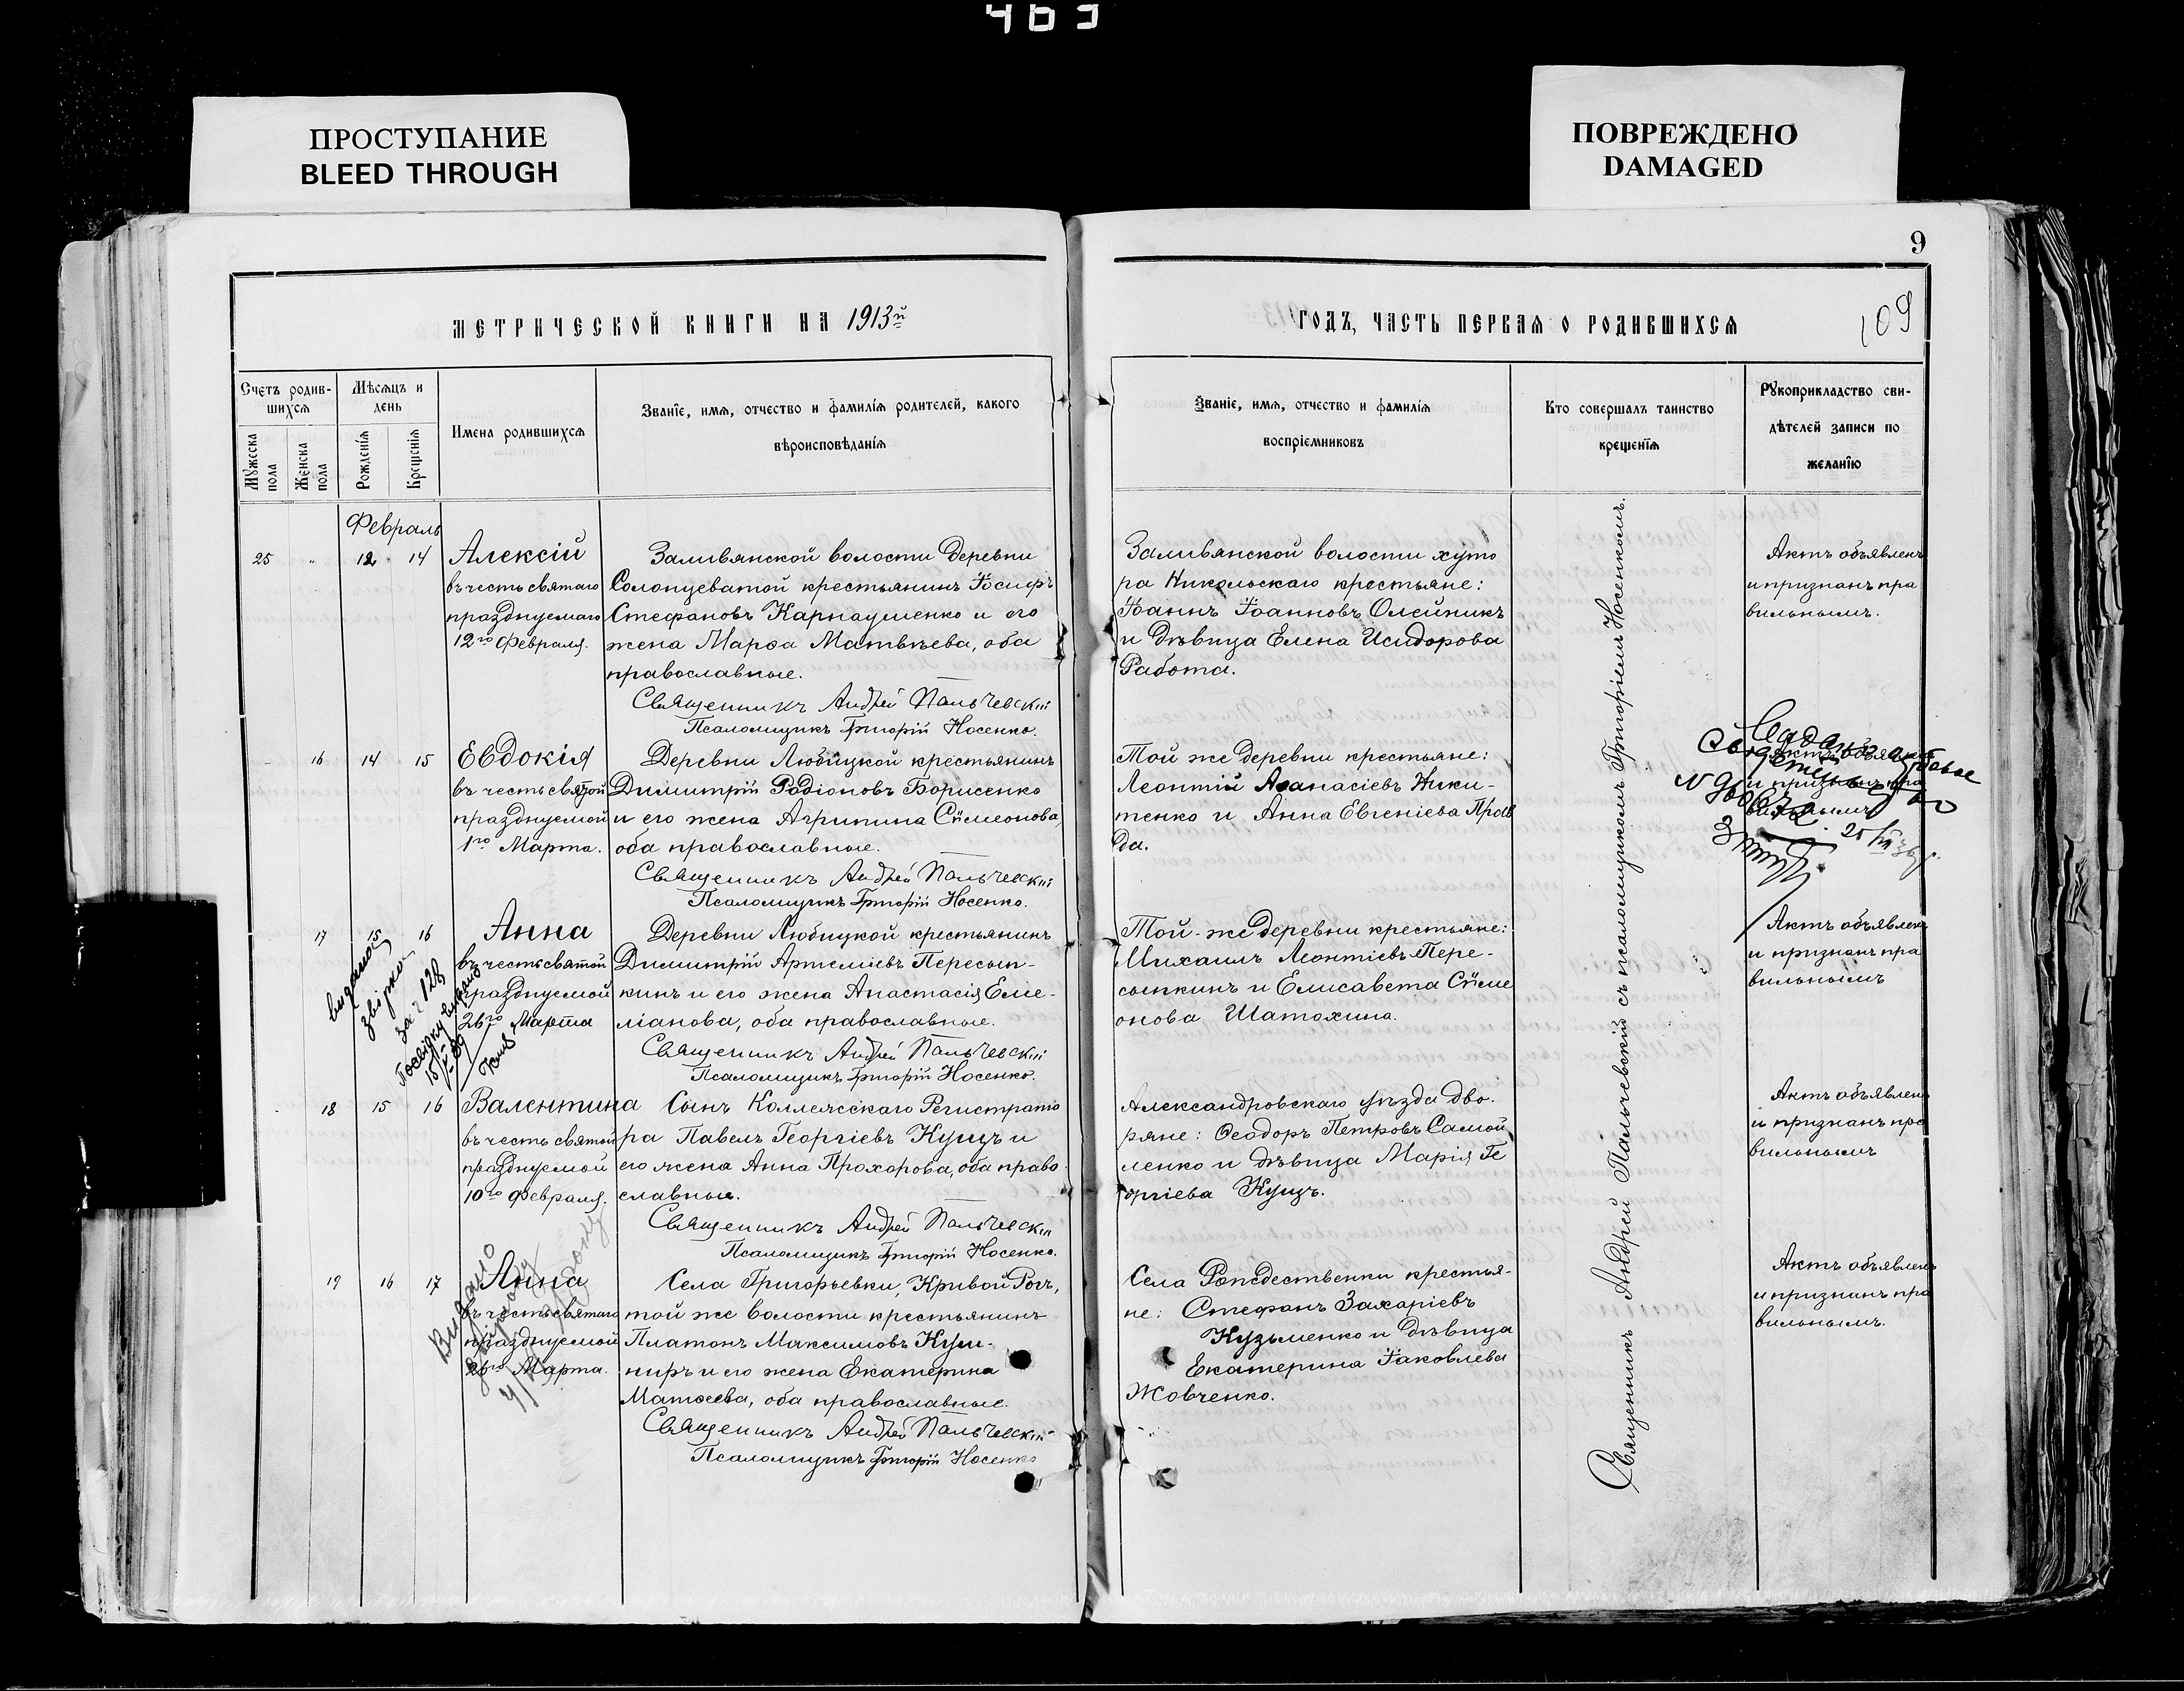 463
ПРОСТУПАНИЕ
BLEED THROUGH
ПОВРЕЖДЕНО
DAMAGED
9
109
МЕТРИЧЕСКОЙ КНИГИ НА 1913й
ГОДЪ, ЧАСТЬ ПЕРВАЯ О РОДИВШИХСЯ
Счетъ родив-
шихся
Мужеска пола
Женска пола
Мѣсяцъ и
день
Рожденія
Крещенія
Имена родившихся
Званіе, имя, отчество и фамилія родителей, какого
вѣроисповѣданія
Званіе, имя, отчество и фамилія
воспріемниковъ
Кто совершалъ таинство
крещенія
Рукоприкладство сви-
дѣтелей записи по
желанію
Февраль
25 " 12 14
Алексій
въ честь святаго
празднуемаго
12го Февраля.
Заливянской волости деревни
Солонцеватой крестьянинъ Іосифъ
Стефановъ Карнаушенко и его
жена Марѳа Матвѣева, оба
православные.
Священникъ Андрей Пальчевскій
Псаломщикъ Григорій Носенко.
Заливянской волости хуто
ра Никольскаго крестьяне:
Іоаннъ Іоанновъ Олейникъ
и дѣвица Елена Исидорова
Работа.
Актъ объявленъ
и признанъ пра
вильнымъ.
16 14 15
Евдокія
въ честь святой
празднуемой
1го Марта.
Деревни Любицкой крестьянинъ
Димитрій Родіоновъ Борисенко
и его жена Агрипина Сѵмеонова,
оба православные.
Священникъ Андрей Пальчевскій
Псаломщикъ Григорій Носенко.
Той же деревни крестьяне:
Леонтій Аѳанасіевъ Ники-
тенко и Анна Евгеніева Прав
да.
Актъ объявленъ
и признанъ пра
вильнымъ
17 15 16
Анна
въ честь святой
празднуемой
26го Марта
Деревни Любицкой крестьянинъ
Димитрій Артеміевъ Пересып-
кинъ и его жена Анастасія Еме-
ліанова, оба православные.
Священникъ Андрей Пальчевскій
Псаломщикъ Григорій Носенко.
Той-же деревни крестьяне:
Михаилъ Леонтіевъ Пере-
сыпкинъ и Елисавета Сѵме
онова Шатохина.
Актъ объявленъ
и признанъ пра
вильнымъ
за № 128
18 15 16
Валентина
въ честь святой
празднуемой
10го Февраля.
Сынъ Коллежскаго Регистрато
ра Павелъ Георгіевъ Кущъ и
его жена Анна Прохорова, оба право
славные.
Священникъ Андрей Пальчевскій
Псаломщикъ Григорій Носенко.
Александровскаго уѣзда дво-
ряне: Ѳеодоръ Петровъ Самой
ленко и дѣвица Марія Ге
оргіева Кущъ.
Актъ объявленъ
и признанъ пра
вильнымъ
19 16 17
Анна
въ честь святаго
празднуемой
26го Марта.
Села Григорьевки, Кривой Рогъ,
той же волости крестьянинъ
Платонъ Максимовъ Куш-
ниръ и его жена Екатерина
Матѳеева, оба православные.
Священникъ Андрей Пальчевскій
Псаломщикъ Григорій Носенко
Села Рождественки крестья-
не: Стефанъ Захаріевъ
Кузьменко и дѣвица
Екатерина Іаковлева
Жовченко.
Актъ объявленъ
и признанъ пра
вильнымъ.
Священникъ Андрей Пальчевскій съ псаломщикомъ Григоріемъ Носенкомъ.